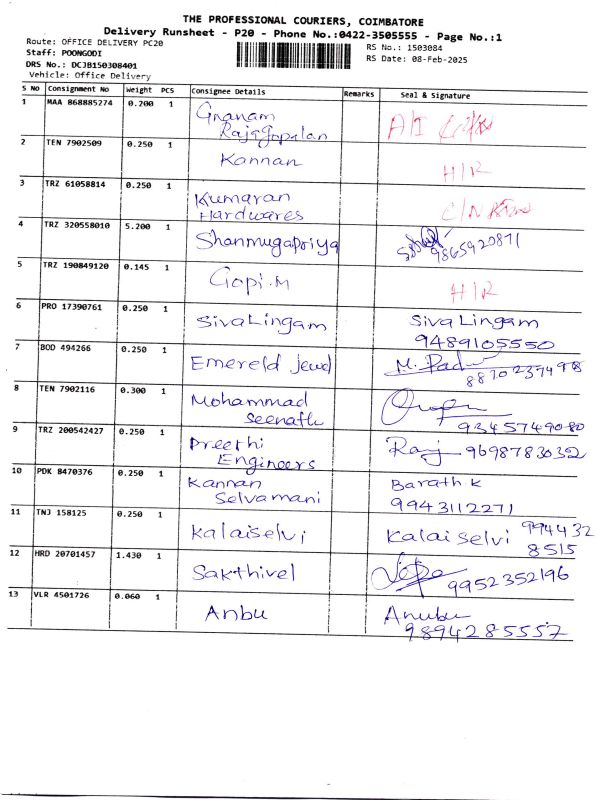 THE PROFESSIONAL COURIERS, COIMBATORE
Delivery Runsheet - P20 - Phone No.:0422-3505555 - Page No.:1
Route: OFFICE DELIVERY PC20
RS No.: 1503084
Staff: POONGODI
RS Date: 08-Feb-2025
DRS No.: DCJB150308401
Vehicle: Office Delivery
S No Consignment No Weight PCS Consignee Details Remarks Seal & Signature
1 MAA 868885274 0.200 1 Gnanam
Rajagopalan A/I
2 TEN 7902509 0.250 1 Kannan H/R
3 TRZ 61058814 0.250 1 Kumaran
Hardwares C/N
4 TRZ 320558010 5.200 1 Shanmugapriya 9865920871
5 TRZ 190849120 0.145 1 Gopi.M H/R
6 PRO 17390761 0.250 1 SivaLingam Siva Lingam
9489105550
7 BOD 494266 0.250 1 Emereld jewel M.
8 TEN 7902116 0.300 1 Mohammad
Seenath 9345749080
9 TRZ 200542427 0.250 1 Preethi
Engineers Raj 9698783032
10 PDK 8470376 0.250 1 Kannan
Selvamani Barath k
9943112271
11 TNJ 158125 0.250 1 Kalaiselvi Kalai Selvi 994432
8515
12 HRD 20701457 1.430 1 Sakthivel 9952352196
13 VLR 4501726 0.060 1 Anbu
9894285557